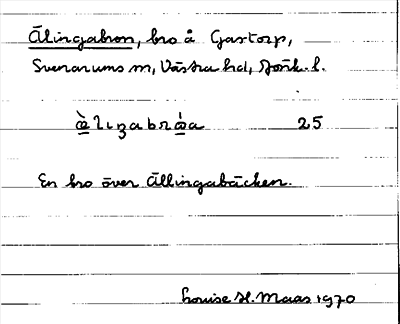 Älingabron, bro å Gastorp,
Svenarums sn, Västra hd, Jönk. l.
æ̀lıngabrǿa 25
En bro över Ällingabäcken.
Louise H. Maas 1970